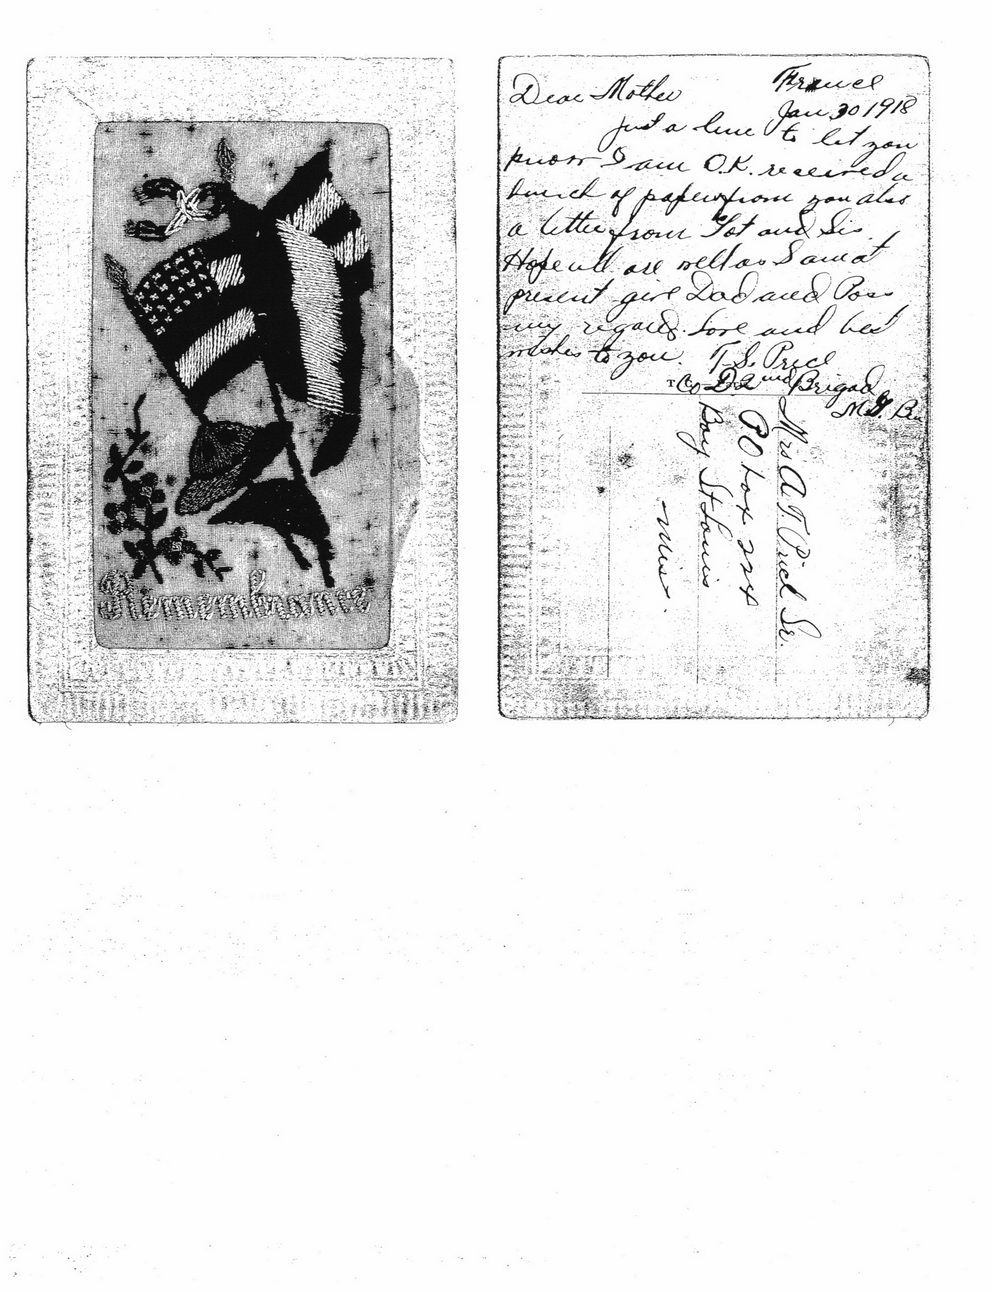 Remembrance
France
Dear Mother
Jan 30 1918
Just a line to let you
know I am O.K. received a
bunch of papers from you also
a letter from Tot and Sis.
Hope all are well as I am at
present give Dad and
my regards. Love and best
wishes to you. T. S. Price
Co D. 2nd Brigade
M.G. Bn.
Mrs A T Price Sr.
PO box 224
Bay St Louis
Miss.